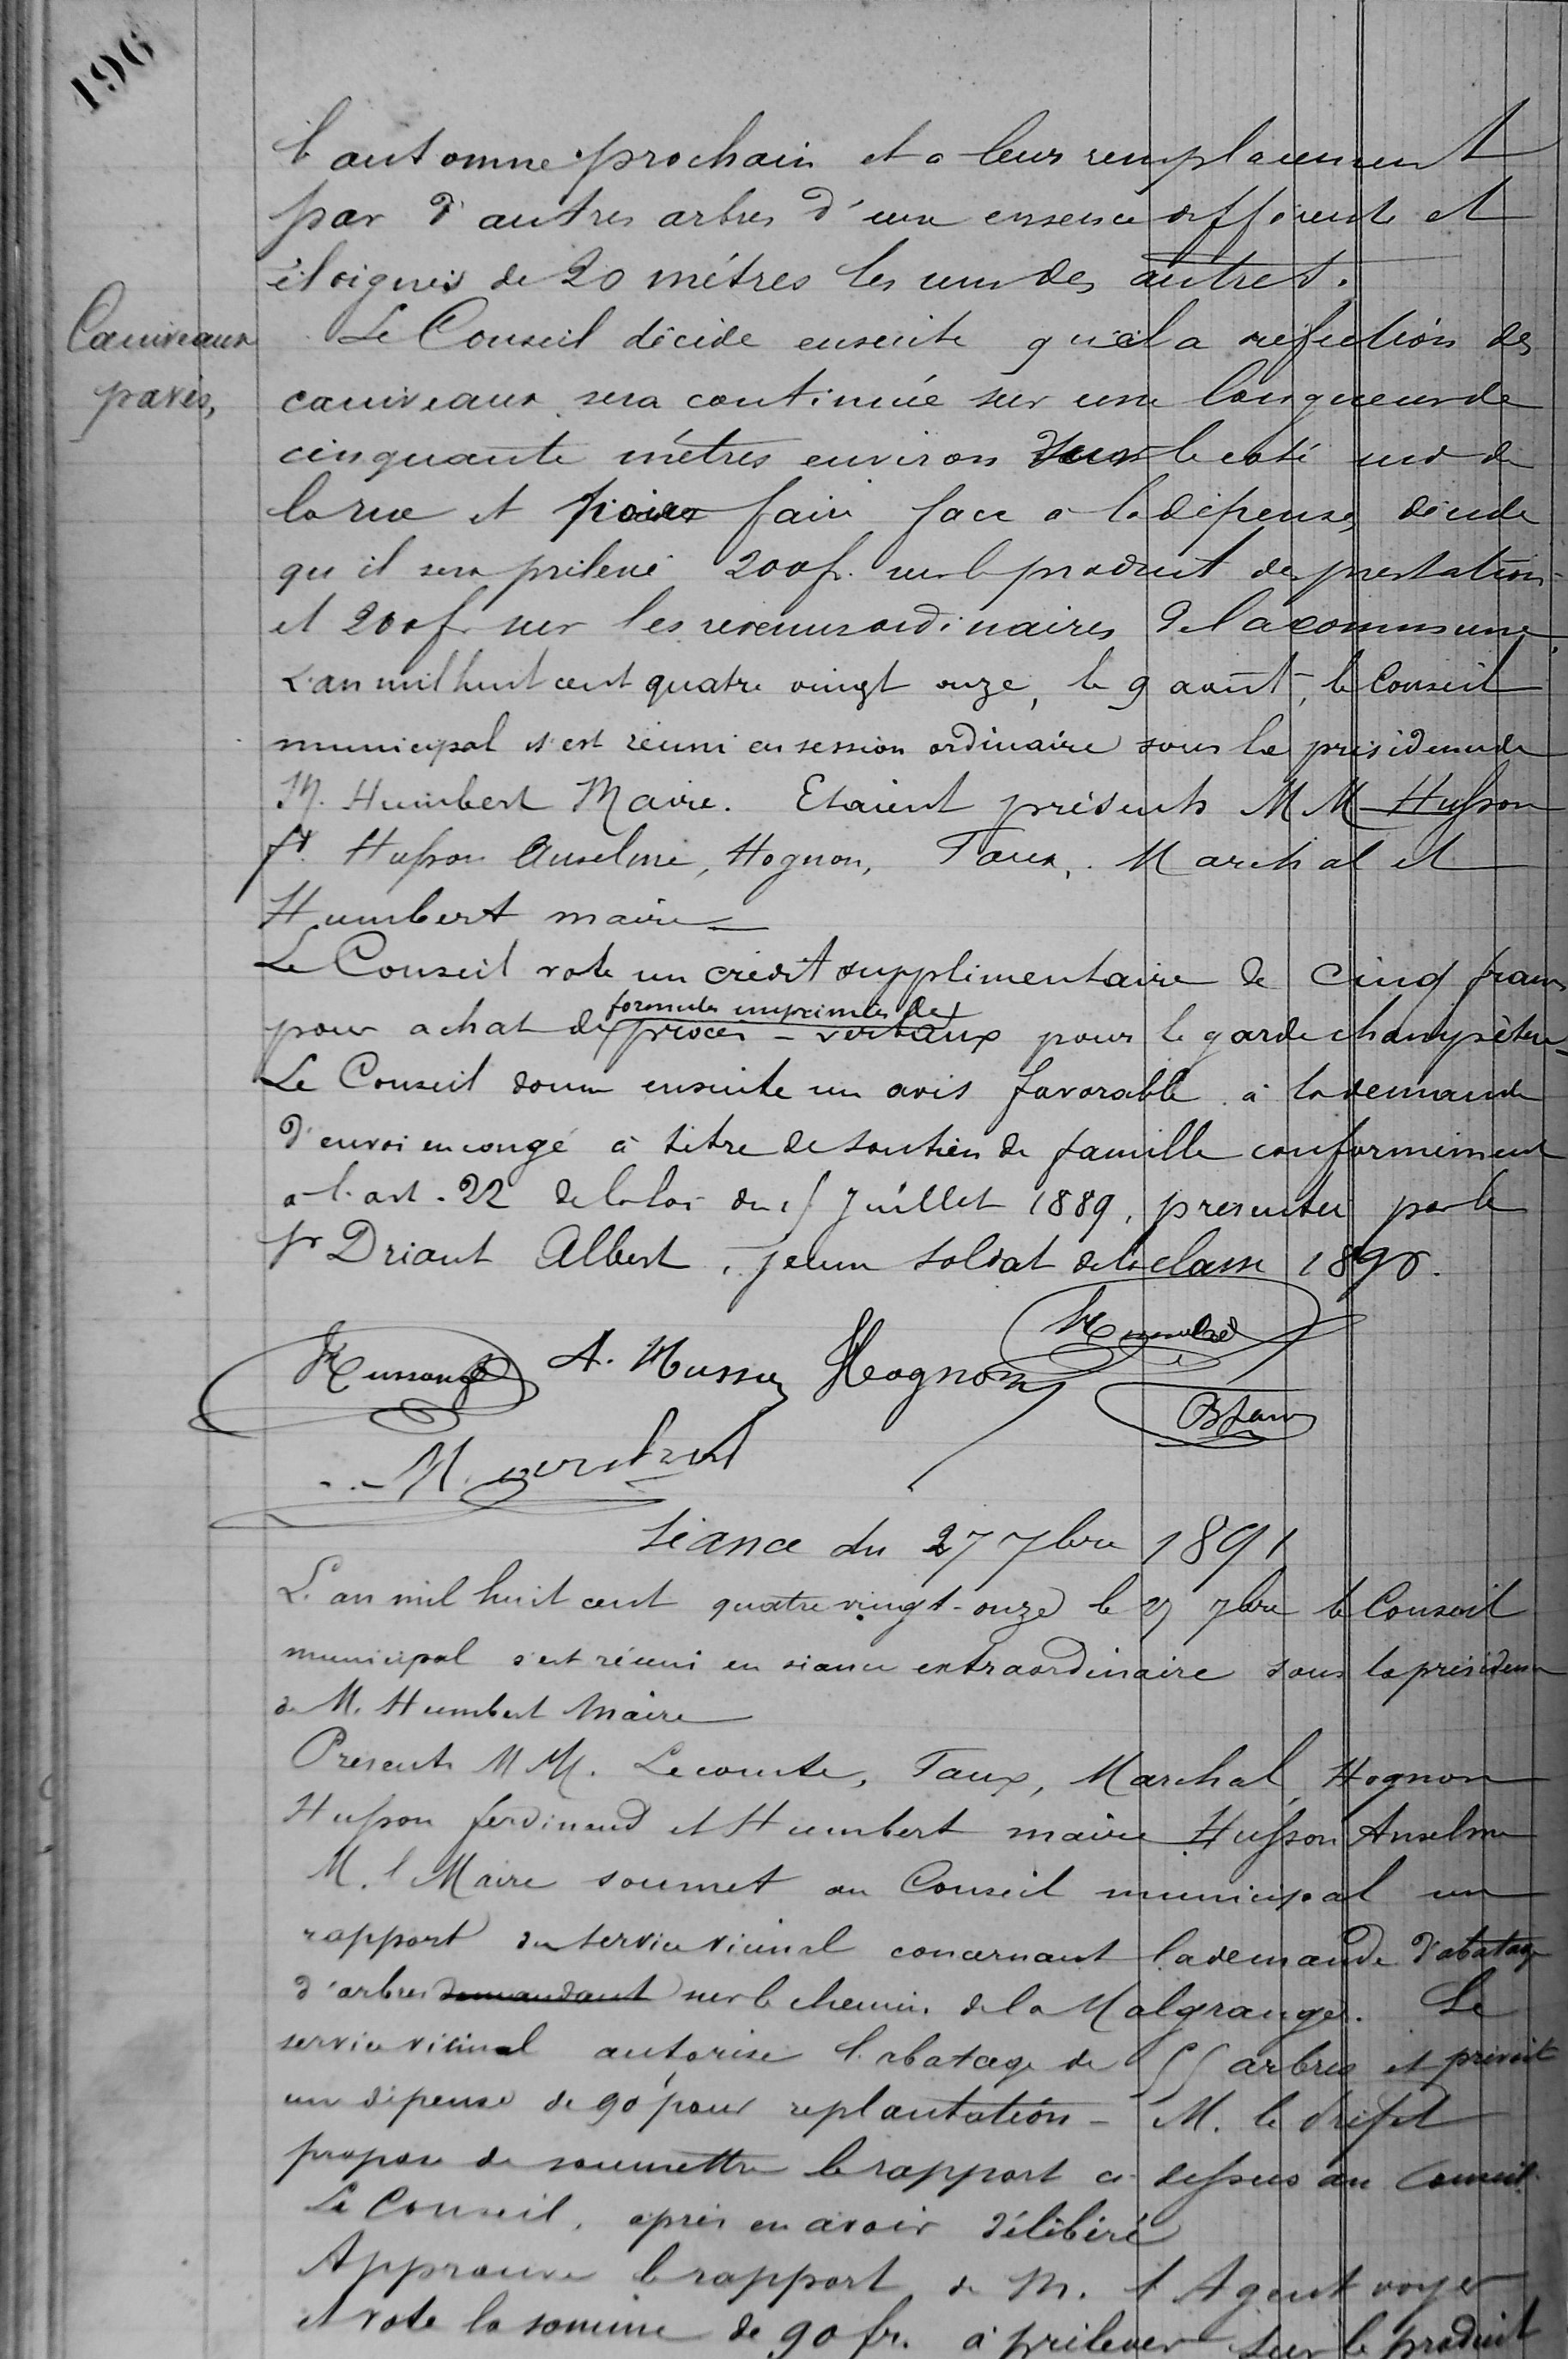 196
l'automne prochain et a leur remplacement
par d'autres arbres d'une essence différente et
éloignés de 20 métres les uns des autres.
Caniveaux
pavés,
Le Conseil décide ensuite que la réfection des
caniveaux sera continuée sur une longueur de
cinquante métres environ sur le coté sud de
la rue et pour faire face a la dépense, décide
qu'il sera prélevé 200f. sur le produit des prestations
et 200f sur les revenus ordinaires de la commune.
L'an mil huit cent quatre vingt onze, le 9 août, le Conseil
municipal s'est réuni en session ordinaire sous la présidence de
M. Humbert Maire. Etaient présents MM Husson
fd. Husson Anselme, Hognon, Taux, Marchal et
Humbert maire
Le Conseil vote un crédit supplémentaire de cinq francs
formules imprimées de
pour achat de procès-verbaux pour le garde champêtre
Le Conseil donne ensuite un avis favorable à la demande
d'envoi en congé à titre de soutien de famille conformément
a l'art. 22 de la loi du 15 Juillet 1889, présentée par le
sr Driant Albert, jeune soldat de la classe 1890.
Husson fd A. Husson Hognon Humbert
B Taux
Marchal
Séance du 27 7bre 1891
L'an mil huit cent quatre vingt-onze le 27 7bre le Conseil
municipal s'est réuni en séance extraordinaire sous la présidence
de M. Humbert Maire
Présents MM. Lecomte, Taux, Marchal, Hognon
Husson ferdinand et Humbert maire Husson Anselme
M. l Maire soumet au Conseil municipal un
rapport du service vicinal concernant la demande d'abatage
d'arbres demandant sur le chemin de la Malgrange. Le
service vicinal autorise l'abatage de 55 arbres et prévoit
une dépense de 90f pour replantation - M. le Préfet
propose de soumettre le rapport ci dessus au Conseil.
Le Conseil, après en avoir délibéré
Approuve le rapport de M. l'Agent voyer
et vote la somme de 90 fr. à prélever sur le produit